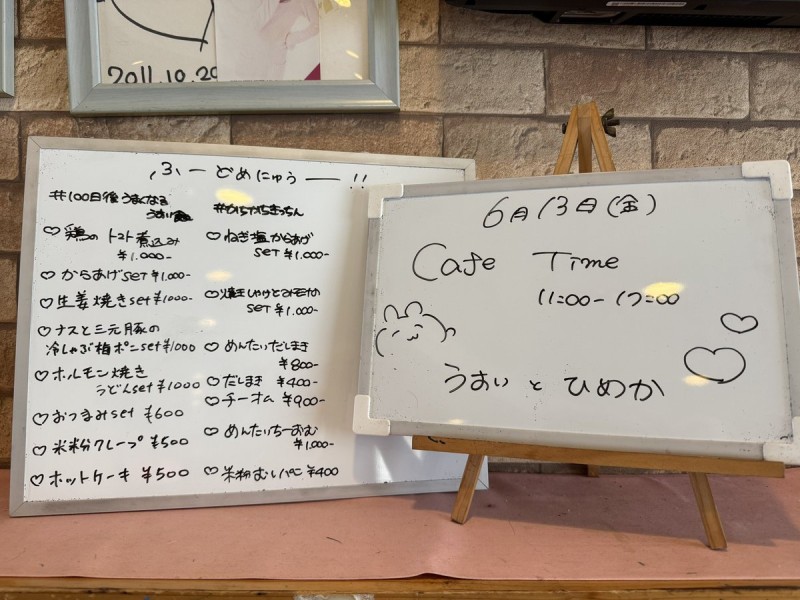 2011.10.29
ふーどめにゅうー!!
#100日後うまくなる
#かちかちきっちん
♡鶏のトマト煮込み
¥1.000-
♡からあげset ¥1.000-
♡生姜焼きset ¥1000-
♡ナスと三元豚の
冷しゃぶ梅ポンset ¥1000
♡ホルモン焼き
うどんset ¥1000
♡おつまみset ¥600
♡米粉クレープ ¥500
♡ホットケーキ ¥500
♡ねぎ塩からあげ
SET ¥1.000-
SET ¥1.000-
♡めんたいだしまき
¥800-
♡だしまき ¥400-
♡チーオム ¥900-
♡めんたいちーおむ
¥1.000-
♡米粉むしパン ¥400
6月13日(金)
Cafe Time
11:00-17:00
うおい と ひめか